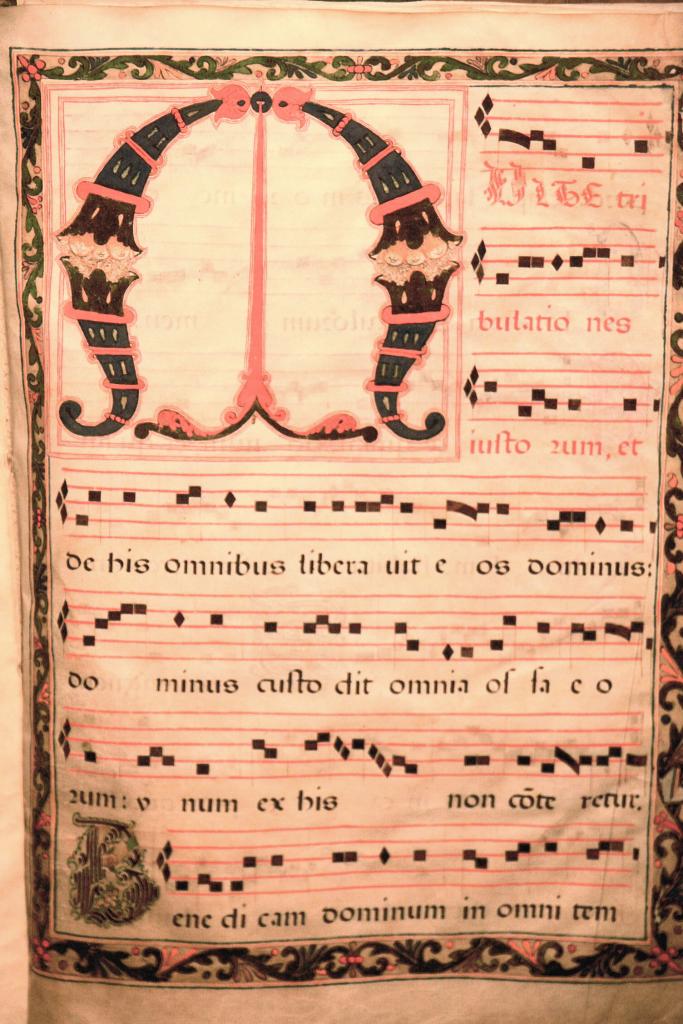 MULTE tri
bulatio nes
iusto rum, et
de his omnibus libera uit e os dominus:
do minus custo dit omnia os sa e o
rum: v num ex his non cōte retur.
Bene di cam dominum in omni tem